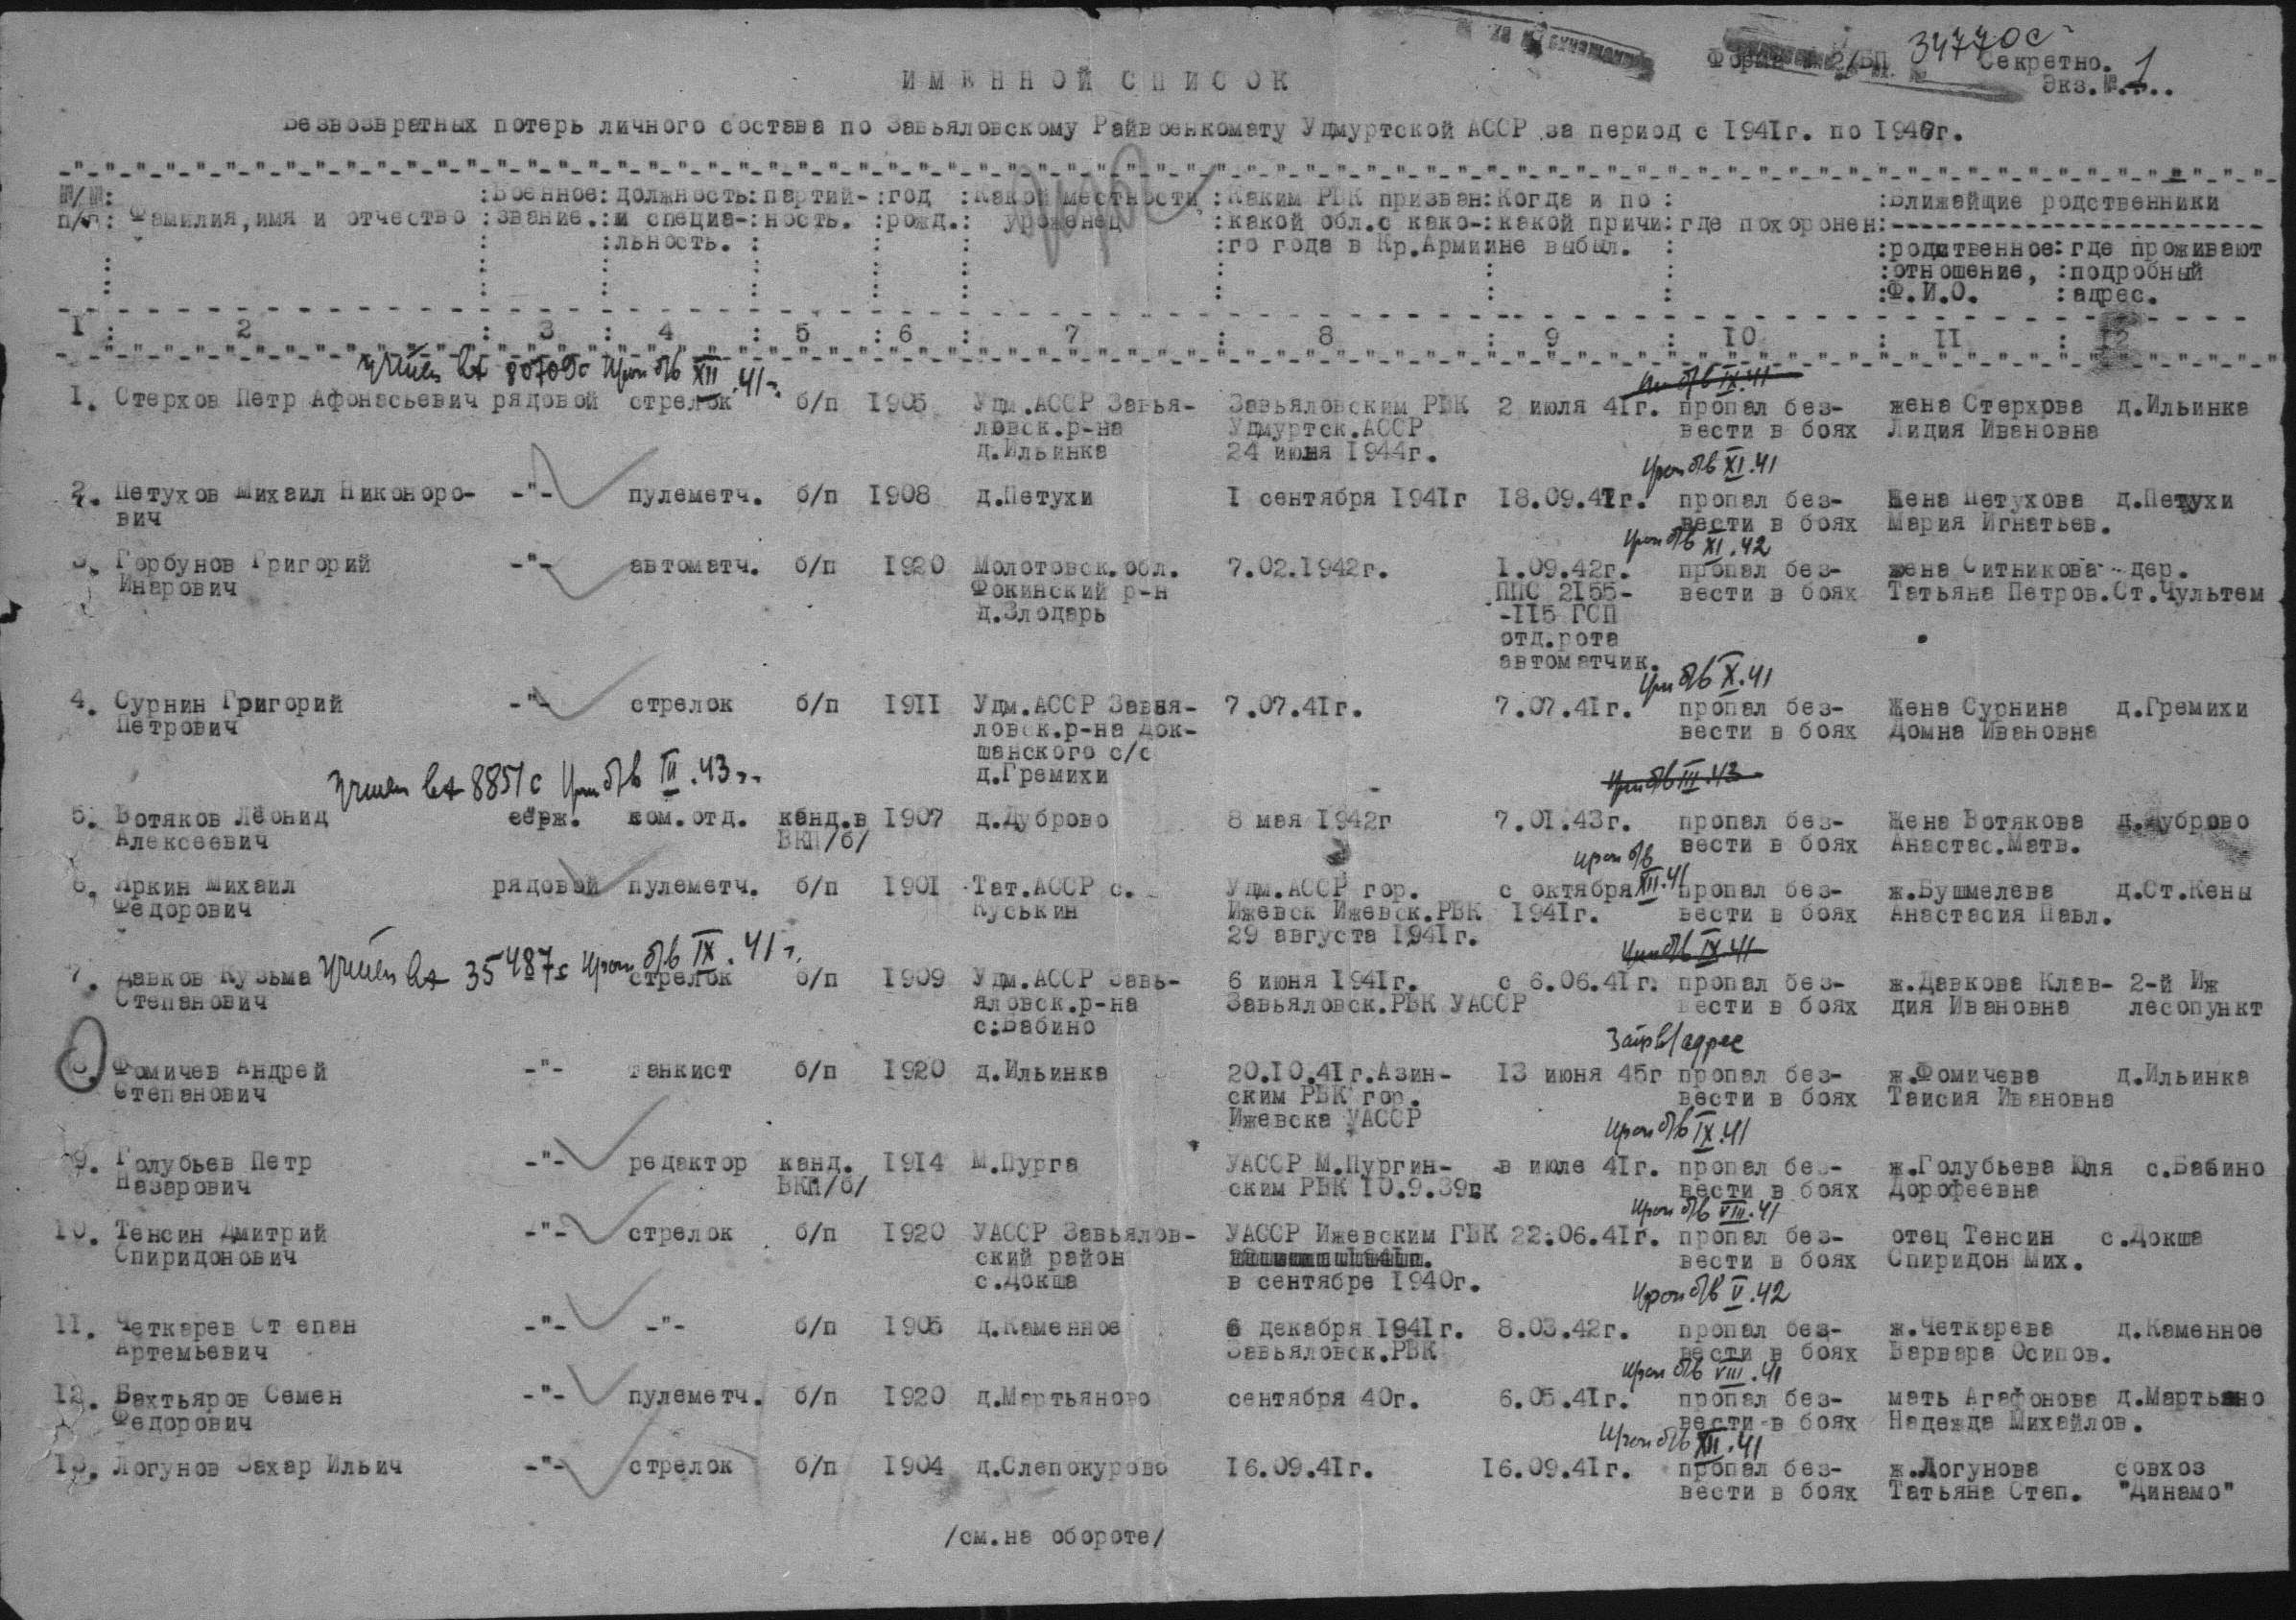 34770с
Форма 2/БП Секретно.
Экз.№ 1
ИМЕННОЙ СПИСОК
Безвозвратных потерь личного состава по Завьяловскому Райвоенкомату Удмуртской АССР за период с 1941г. по 1946г.
№/№: :Военное:должность:партий-:год :Какой местности :Каким РВК призван:Когда и по : :Ближайщие родственники
п/п: Фамилия,имя и отчество :звание.:и специа-:ность. :рожд.: уроженец :какой обл.с како-:какой причи:где похоронен:
:льность. : :го года в Кр.Армиине выбыл. : :родственное:где проживают
:отношение, :подробный
:Ф.И.О. :адрес.
1 : 2 : 3 : 4 : 5 : 6 : 7 : 8 : 9 : 10 : 11 : 12
учтен вх 80709с проп б/в XII.41г. проп б/в IX.41
1. Стерхов Петр Афонасьевич рядовой стрелок б/п 1905 Удм.АССР Завья- Завьяловским РВК 2 июля 41г. пропал без- жена Стерхова д.Ильинка
ловск.р-на Удмуртск.АССР вести в боях Лидия Ивановна
д.Ильинка 24 июня 1944г.
проп б/в XI.41
2. Петухов Михаил Никоноро- -"- пулеметч. б/п 1908 д.Петухи 1 сентября 1941г 18.09.41г. пропал без- Жена Петухова д.Петухи
вич вести в боях Мария Игнатьев.
проп б/в XI.42
3. Горбунов Григорий -"- автоматч. б/п 1920 Молотовск.обл. 7.02.1942г. 1.09.42г. пропал без- жена Ситникова дер.
Инарович Фокинский р-н ППС 2155- вести в боях Татьяна Петров.Ст.Чультем
д.Злодарь -115 ГСП
отд.рота
автоматчик.
проп б/в X.41
4. Сурнин Григорий -"- стрелок б/п 1911 Удм.АССР Завья- 7.07.41г. 7.07.41г. пропал без- Жена Сурнина д.Гремихи
Петрович ловск.р-на Док- вести в боях Домна Ивановна
шанского с/с
д.Гремихи
учтен вх 8851с проп б/в III.43г. проп б/в III.43
5. Вотяков Леонид серж. ком.отд. канд.в 1907 д.Дуброво 8 мая 1942г 7.01.43г. пропал без- Жена Вотякова д.Дуброво
Алексеевич ВКП/б/ вести в боях Анастас.Матв.
проп б/в XII.41
6. Яркин Михаил рядовой пулеметч. б/п 1901 Тат.АССР с. Удм.АССР гор. с октября пропал без- ж.Бушмелева д.Ст.Кены
Федорович Куськин Ижевск Ижевск.РВК 1941г. вести в боях Анастасия Павл.
29 августа 1941г.
учтен вх 35487с проп б/в IX.41г. проп б/в IX.41
7. Давков Кузьма стрелок б/п 1909 Удм.АССР Завь- 6 июня 1941г. с 6.06.41г. пропал без- ж.Давкова Клав- 2-й Иж
Степанович яловск.р-на Завьяловск.РВК УАССР вести в боях дия Ивановна лесопункт
с.Бабино
Запр в/адрес
8. Фомичев Андрей -"- танкист б/п 1920 д.Ильинка 20.10.41г.Азин- 13 июня 45г пропал без- ж.Фомичева д.Ильинка
Степанович ским РВК гор. вести в боях Таисия Ивановна
Ижевска УАССР
проп б/в IX.41
9. Голубьев Петр -"- редактор канд. 1914 М.Пурга УАССР М.Пургин- в июле 41г. пропал без- ж.Голубьева Юля с.Бабино
Назарович ВКП/б/ ским РВК 10.9.39г. вести в боях Дорофеевна
проп б/в VIII.41
10. Тенсин Дмитрий -"- стрелок б/п 1920 УАССР Завьялов- УАССР Ижевским ГВК 22.06.41г. пропал без- отец Тенсин с.Докша
Спиридонович ский район вести в боях Спиридон Мих.
с.Докша в сентябре 1940г.
проп б/в V.42
11. Четкарев Степан -"- -"- б/п 1905 д.Каменное 6 декабря 1941г. 8.03.42г. пропал без- ж.Четкарева д.Каменное
Артемьевич Завьяловск.РВК вести в боях Варвара Осипов.
проп б/в VIII.41
12. Бахтьяров Семен -"- пулеметч. б/п 1920 д.Мартьяново сентября 40г. 6.05.41г. пропал без- мать Агафонова д.Мартьяно
Федорович вести в боях Надежда Михайлов.
проп б/в XII.41
13. Логунов Захар Ильич -"- стрелок б/п 1904 д.Слепокурово 16.09.41г. 16.09.41г. пропал без- ж.Логунова совхоз
вести в боях Татьяна Степ. "Динамо"
/см.на обороте/